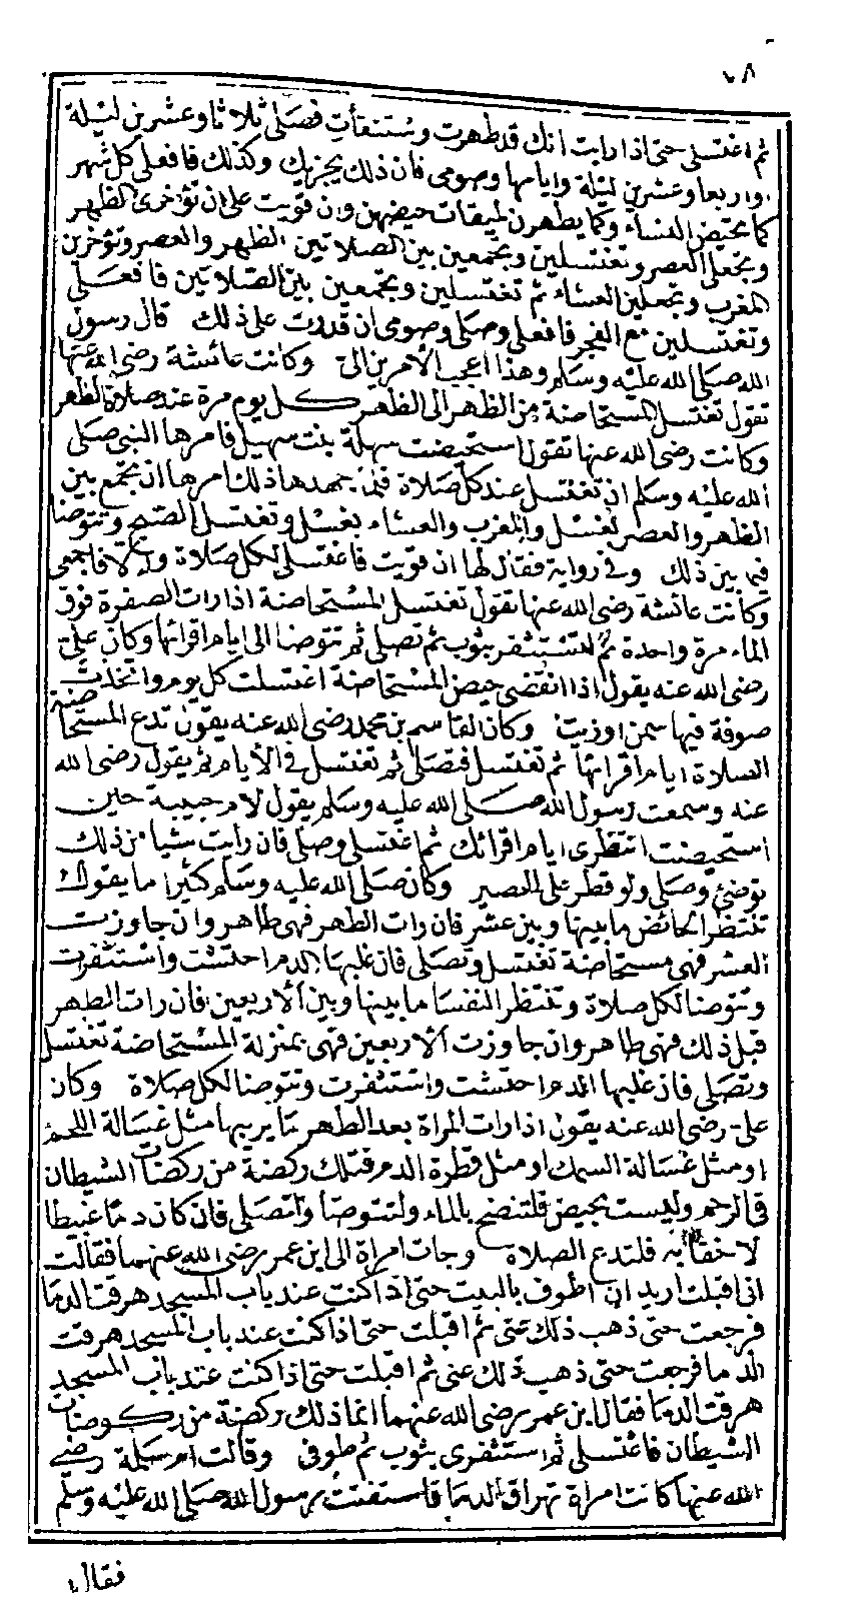 ٧٨
ثم اغتسلى حتى اذا رايت انك قد طهرت وستنقأت فصلى ثلاثا وعشرين ليلة
او اربعا وعشرين ليلة وايامها وصومى فان ذلك يجزيك وكذلك فافعلى كل شهر
كما تحيض النساء وكما يطهرن لميقات حيضهن وان قويت على ان تؤخرى الظهر
وتجعلى العصر وتغتسلين وتجمعين بين الصلاتين الظهر والعصر وتؤخرين
المغرب وتجعلين العشاء ثم تغتسلين وتجمعين بين الصلاتين فافعلى
وتغتسلين مع الفجر فافعلى وصلى وصومى ان قدرت على ذلك قال رسول
الله صلى الله عليه وسلم وهذا اعجب الأمرين الى وكانت عائشة رضى الله عنها
تقول تغتسل المستحاضة من الظهر الى الظهر كل يوم مرة عند صلاة الظهر
وكانت رضى الله عنها تقول استحيضت سهلة بنت سهيل فامرها النبى صلى
الله عليه وسلم ان تغتسل عند كل صلاة فلما جهدها ذلك امرها ان تجمع بين
الظهر والعصر بغسل والمغرب والعشاء بغسل وتغتسل للصبح وتتوضا
فيما بين ذلك وفى رواية فقال لها ان قويت فاغتسلى لكل صلاة والا فاجمعى
وكانت عائشة رضى الله عنها تقول تغتسل المستحاضة اذا رات الصفرة فوق
الماء مرة واحدة ثم لتستثفر بثوب ثم تصلى ثم تتوضا الى ايام اقرائها وكان على
رضى الله عنه يقول اذا انقضى حيض المستحاضة اغتسلت كل يوم واتخذت
صوفة فيها سمن او زيت وكان القاسم بن محمد رضى الله عنه يقول تدع المستحاضة
الصلاة ايام اقرائها ثم تغتسل فتصلى ثم تغتسل فى الأيام ثم يقول رضى الله
عنه وسمعت رسول الله صلى الله عليه وسلم يقول لام حبيبة حين
استحيضت انتظرى ايام اقرائك ثم اغتسلى وصلى فان رايت شيا من ذلك
توضئ وصلى ولو قطر على الحصير وكان صلى الله عليه وسلم كثيرا ما يقول
تنتظر الحائض ما بينها وبين عشر فان رات الطهر فهى طاهر وان جاوزت
العشر فهى مستحاضة تغتسل وتصلى فان غلبها الدم احتشت واستثفرت
وتتوضا لكل صلاة وتنتظر النفسا ما بينها وبين الأربعين فان رات الطهر
قبل ذلك فهى طاهر وان جاوزت الأربعين فهى بمنزلة المستحاضة تغتسل
وتصلى فان غلبها الدم احتشت واستثفرت وتتوضا لكل صلاة وكان
على رضى الله عنه يقول اذا رات المراة بعد الطهر ما يريبها مثل غسالة اللحم
او مثل غسالة السمك او مثل قطرة الدم فتلك ركضة من ركضات الشيطان
فى الرحم وليست بحيض فلتنضح بالماء ولتتوضا ولتصلى فان كان دما عبيطا
لا خفا به فلتدع الصلاة وجات امراة الى ابن عمر رضى الله عنهما فقالت
انى اقبلت اريد ان اطوف بالبيت حتى اذا كنت عند باب المسجد هرقت الدما
فرجعت حتى ذهب ذلك عنى ثم اقبلت حتى اذا كنت عند باب المسجد هرقت
الدما فرجعت حتى ذهب ذلك عنى ثم اقبلت حتى اذا كنت عند باب المسجد
هرقت الدما فقال ابن عمر رضى الله عنهما انما ذلك ركضة من ركوضات
الشيطان فاغتسلى ثم استثفرى بثوب ثم طوفى وقالت ام سلمة رضى
الله عنها كانت امراة تهراق الدما فاستفتت رسول الله صلى الله عليه وسلم
فقال